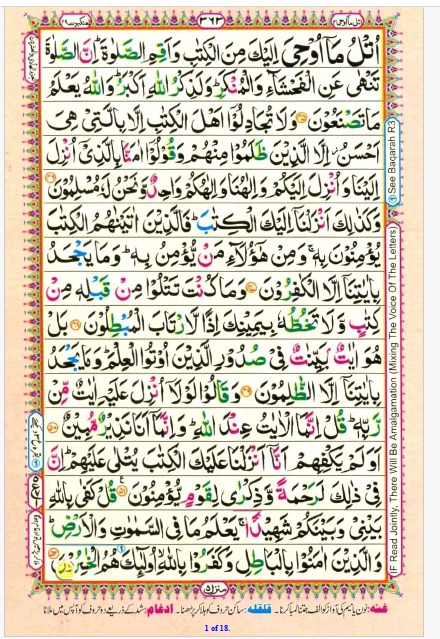 اتل مآ اوحی ۲۱
۳۶۳
العنکبوت ۲۹
اُتْلُ مَاۤ اُوْحِیَ اِلَیْكَ مِنَ الْكِتٰبِ وَاَقِمِ الصَّلٰوةَ ؕ اِنَّ الصَّلٰوةَ
تَنْهٰى عَنِ الْفَحْشَآءِ وَالْمُنْكَرِ ؕ وَلَذِكْرُ اللّٰهِ اَكْبَرُ ؕ وَاللّٰهُ یَعْلَمُ
مَا تَصْنَعُوْنَ ۴۵ وَلَا تُجَادِلُوْۤا اَهْلَ الْكِتٰبِ اِلَّا بِالَّتِیْ هِیَ
اَحْسَنُ ۖ اِلَّا الَّذِیْنَ ظَلَمُوْا مِنْهُمْ وَقُوْلُوْۤا اٰمَنَّا بِالَّذِیْۤ اُنْزِلَ
اِلَیْنَا وَاُنْزِلَ اِلَیْكُمْ وَاِلٰهُنَا وَاِلٰهُكُمْ وَاحِدٌ وَّنَحْنُ لَهٗ مُسْلِمُوْنَ ۴۶
وَكَذٰلِكَ اَنْزَلْنَاۤ اِلَیْكَ الْكِتٰبَ ؕ فَالَّذِیْنَ اٰتَیْنٰهُمُ الْكِتٰبَ
یُؤْمِنُوْنَ بِهٖ ۚ وَمِنْ هٰۤؤُلَآءِ مَنْ یُّؤْمِنُ بِهٖ ؕ وَمَا یَجْحَدُ
بِاٰیٰتِنَاۤ اِلَّا الْكٰفِرُوْنَ ۴۷ وَمَا كُنْتَ تَتْلُوْا مِنْ قَبْلِهٖ مِنْ
كِتٰبٍ وَّلَا تَخُطُّهٗ بِیَمِیْنِكَ اِذًا لَّارْتَابَ الْمُبْطِلُوْنَ ۴۸ بَلْ
هُوَ اٰیٰتٌۢ بَیِّنٰتٌ فِیْ صُدُوْرِ الَّذِیْنَ اُوْتُوا الْعِلْمَ ؕ وَمَا یَجْحَدُ
بِاٰیٰتِنَاۤ اِلَّا الظّٰلِمُوْنَ ۴۹ وَقَالُوْا لَوْلَاۤ اُنْزِلَ عَلَیْهِ اٰیٰتٌ مِّنْ
رَّبِّهٖ ؕ قُلْ اِنَّمَا الْاٰیٰتُ عِنْدَ اللّٰهِ ؕ وَاِنَّمَاۤ اَنَا نَذِیْرٌ مُّبِیْنٌ ۵۰
اَوَلَمْ یَكْفِهِمْ اَنَّاۤ اَنْزَلْنَا عَلَیْكَ الْكِتٰبَ یُتْلٰى عَلَیْهِمْ ؕ اِنَّ
فِیْ ذٰلِكَ لَرَحْمَةً وَّذِكْرٰى لِقَوْمٍ یُّؤْمِنُوْنَ ۵۱ قُلْ كَفٰى بِاللّٰهِ
بَیْنِیْ وَبَیْنَكُمْ شَهِیْدًا ۚ یَعْلَمُ مَا فِی السَّمٰوٰتِ وَالْاَرْضِ ؕ
وَالَّذِیْنَ اٰمَنُوْا بِالْبَاطِلِ وَكَفَرُوْا بِاللّٰهِ ۙ اُولٰٓئِكَ هُمُ الْخٰسِرُوْنَ ۵۲
منزل ۵
① See Baqarah R3
IF Read Jointly, There Will Be Amalgamation (Mixing The Voice Of The Letters)
غنه: نون یا میم کی آواز کو الف جتنا لمبا کرنا۔ قلقله: ساکن حروف کو ہلا کر پڑھنا۔ ادغام: شد کے ذریعے دو حروف کو آپس میں ملانا
1 of 18.